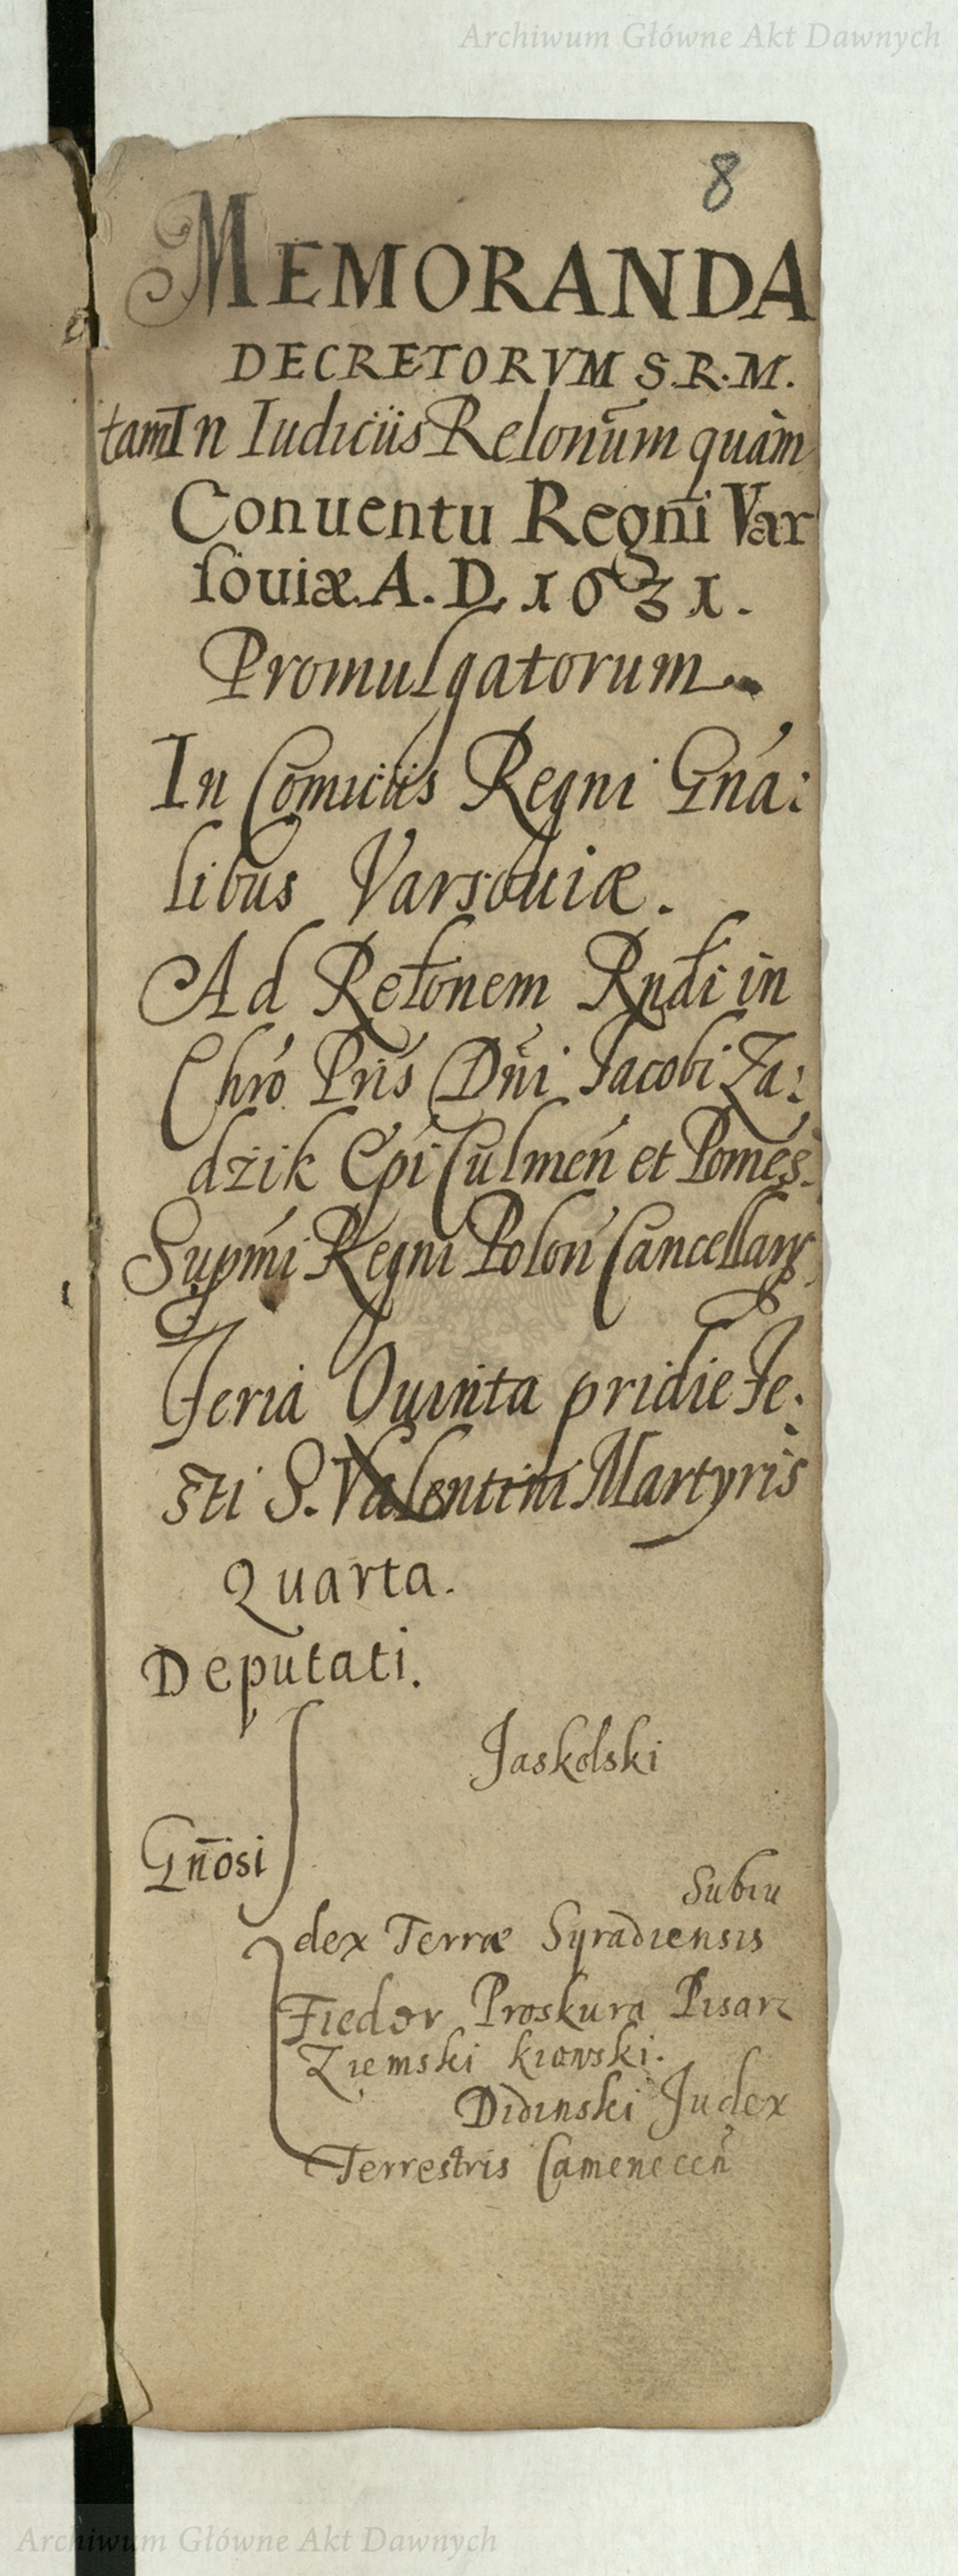 Archiwum Główne Akt Dawnych
8
MEMORANDA
DECRETORVM S.R.M.
tam In Iudiciis Relonum̄ quàm
Conuentu Regni Var
souiæ A. D. 1631.
Promulgatorum
In Comiciis Regni Gńa:
libus Varsouiæ.
Ad Relonem Rndi in
Chrō Pris Dn̄i Jacobi Za:
dzik Epi Culmeń et Pomes.
Supmi Regni Poloń Cancellarÿ
Feria Quinta pridie Fe:
sti S. Valentini Martyris
Quarta.
Deputati.
Jaskolski
Gn̄osi
Subiu
dex Terræ Syradiensis
Fiedor Proskura Pisarz
Ziemski kiowski.
Didinski Judex
Terrestris Cameneceń
Archiwum Główne Akt Dawnych